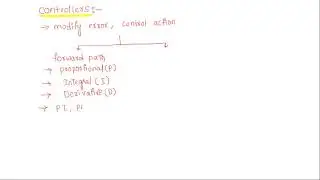 Controllers:-
→ modify error, control action
forward path
→ proportional (P)
→ Integral (I)
→ Derivative (D)
→ PI, PI